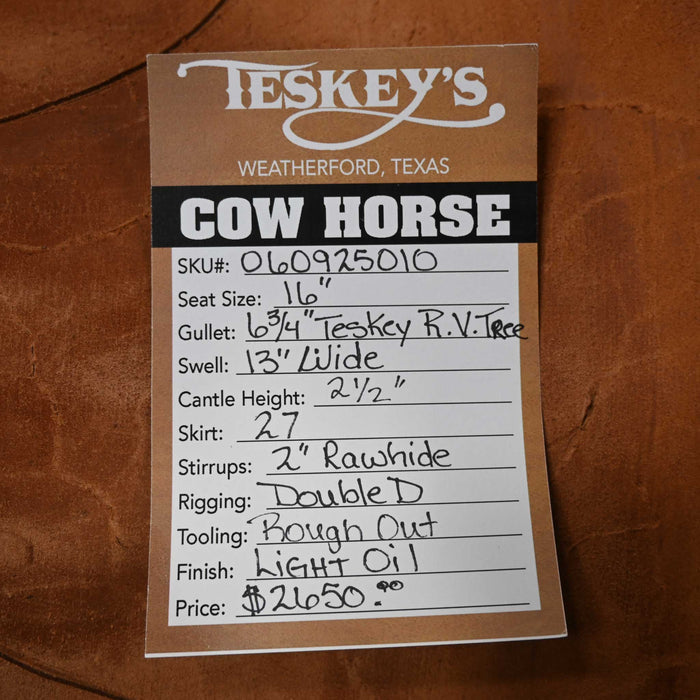 TESKEY'S
WEATHERFORD, TEXAS
COW HORSE
SKU#: 060925010
Seat Size: 16"
Gullet: 6 3/4" Teskey R.V. Tree
Swell: 13" Wide
Cantle Height: 2 1/2"
Skirt: 27
Stirrups: 2" Rawhide
Rigging: Double D
Tooling: Rough Out
Finish: LIGHT Oil
Price: $2650.00